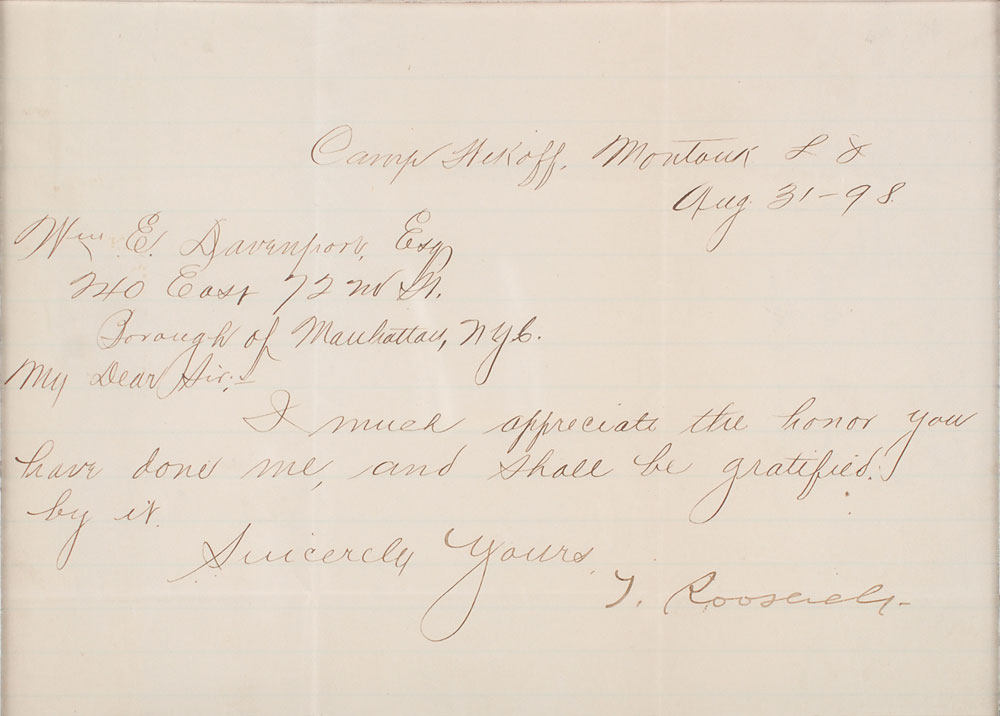 Camp Wikoff, Montauk L I
Aug 31-98.
Wm E. Davenport, Esq
240 East 72nd St.
Borough of Manhattan, NYC.
My Dear Sir:-
I much appreciate the honor you
have done me, and shall be gratified.
by it.
Sincerely Yours,
T. Roosevelt-